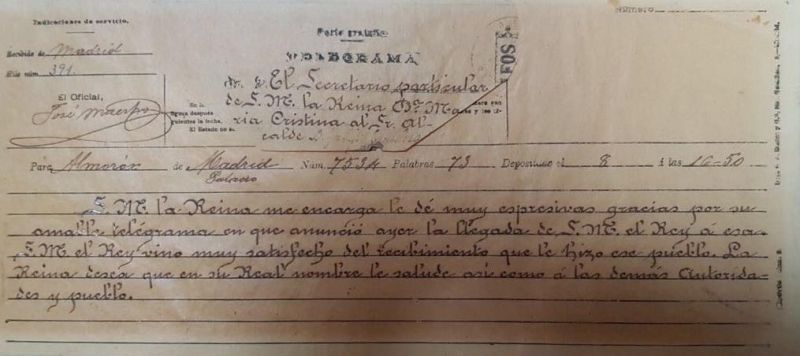 Indicaciones de servicio.
Número
Porte gratuito
TELEGRAMA
Recibido de Madrid
Hilo núm. 391.
El Oficial,
José Maestro
FOS
D. El Secretario particular
de S. M. la Reina Dª. Ma
ria Cristina al Sr. Al
calde
En la
El Estado no
Para Almorox de Madrid Núm. 7534 Palabras 73 Depositado el 8 á las 16-50
Palacio
S. M. la Reina me encarga le dé muy espresivas gracias por su
amable telegrama en que anunció ayer la llegada de S. M. el Rey á esa.
S. M. el Rey vino muy satisfecho del recibimiento que le hizo ese pueblo. La
Reina desea que en su Real nombre le salude así como á las demás Autorida-
des y pueblo.